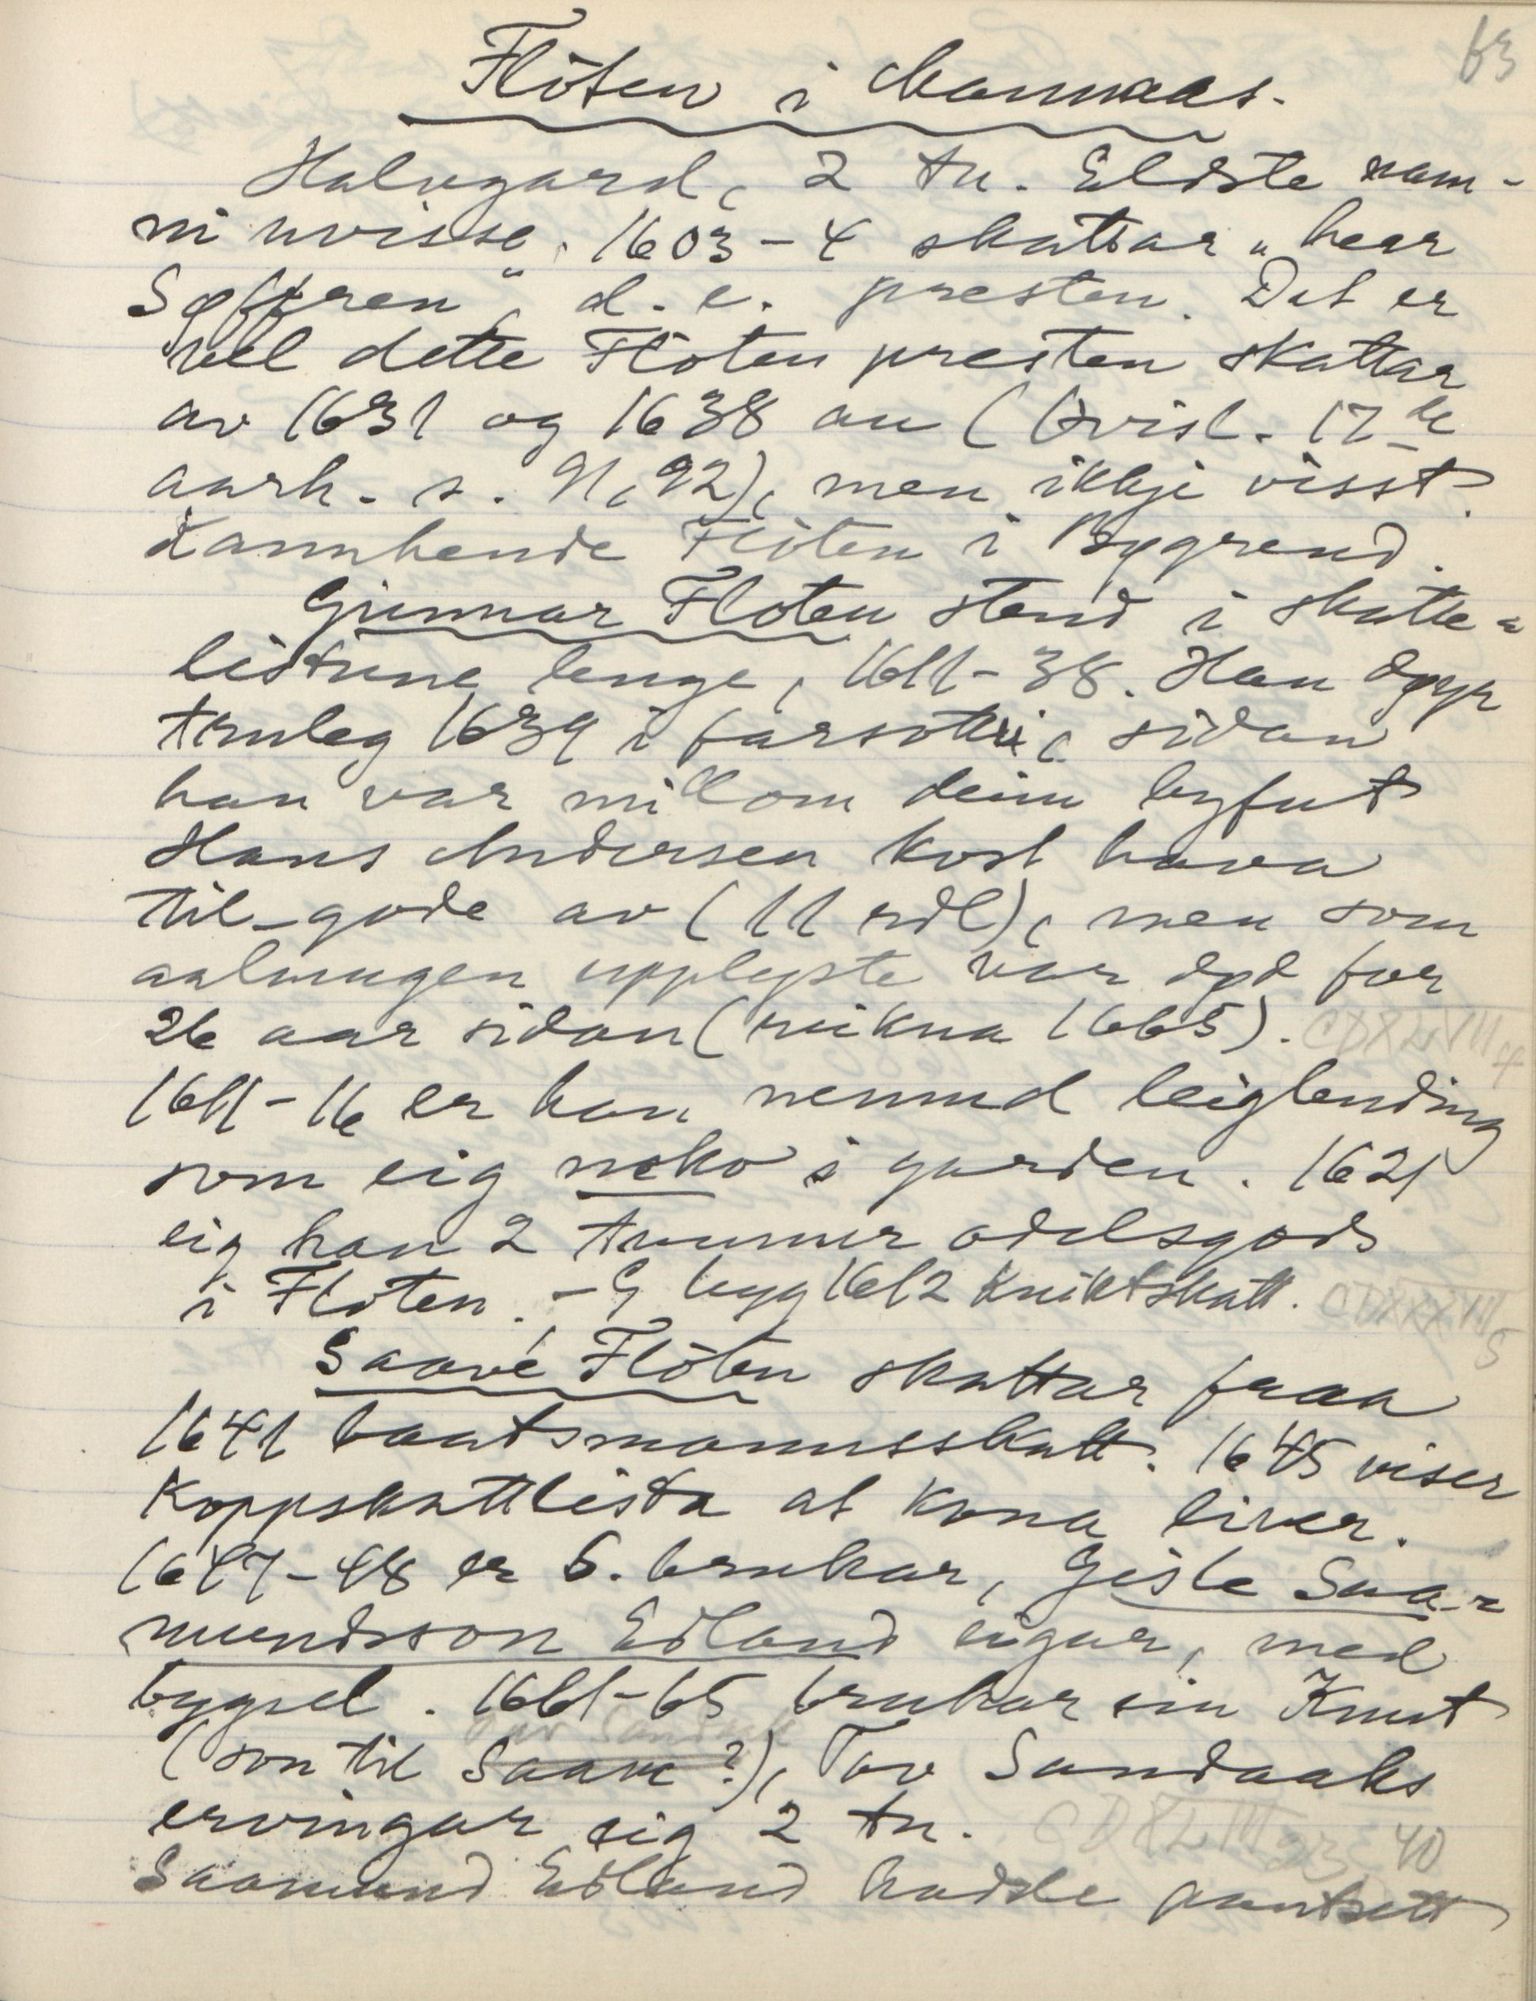 63
Flöten i Mannaas.
Halvgard, 2 tn. Eldste nam-
ni uvisse. 1603-4 skattar "herr
Søffren", d. e. presten. Det er
vel dette Flöten presten skattar
av 1631 og 1638 au (Kvisl. 17de
aarh. s. 91, 92), men ikkje visst.
Kannhende Flöten i Bygrend.
Gunnar Flöten stend i skatte-
listune lenge, 1611-38. Han døyr
truleg 1639 i farsotti, sidan
han var millom deim byfut
Hans Andersen kost hava
til-gode av (11 rdl), men som
aalmugen upplyste var død for
26 aar sidan (rikna 1665). CDXLVIII 4
1611-16 er han nemnd leiglending
som eig noko i garden. 1621
eig han 2 tunnur odelsgods
i Flöten. - G bygg 1612 Kniktskatt. CDXXXVIII 5
Saave Flöten skattar fraa
1641 baatsmannsskatt. 1645 viser
Koppskattlista at kona liver.
1647-48 er S. brukar, Gisle Saa-
mundsson Edland eigar, med
bygsel. 1661-65 brukar ein Knut
(son til Saave?), Tov Sundaaks
ervingar eig 2 tn. CDXLIII 23, 40
Saamund Edland hadde pantsett